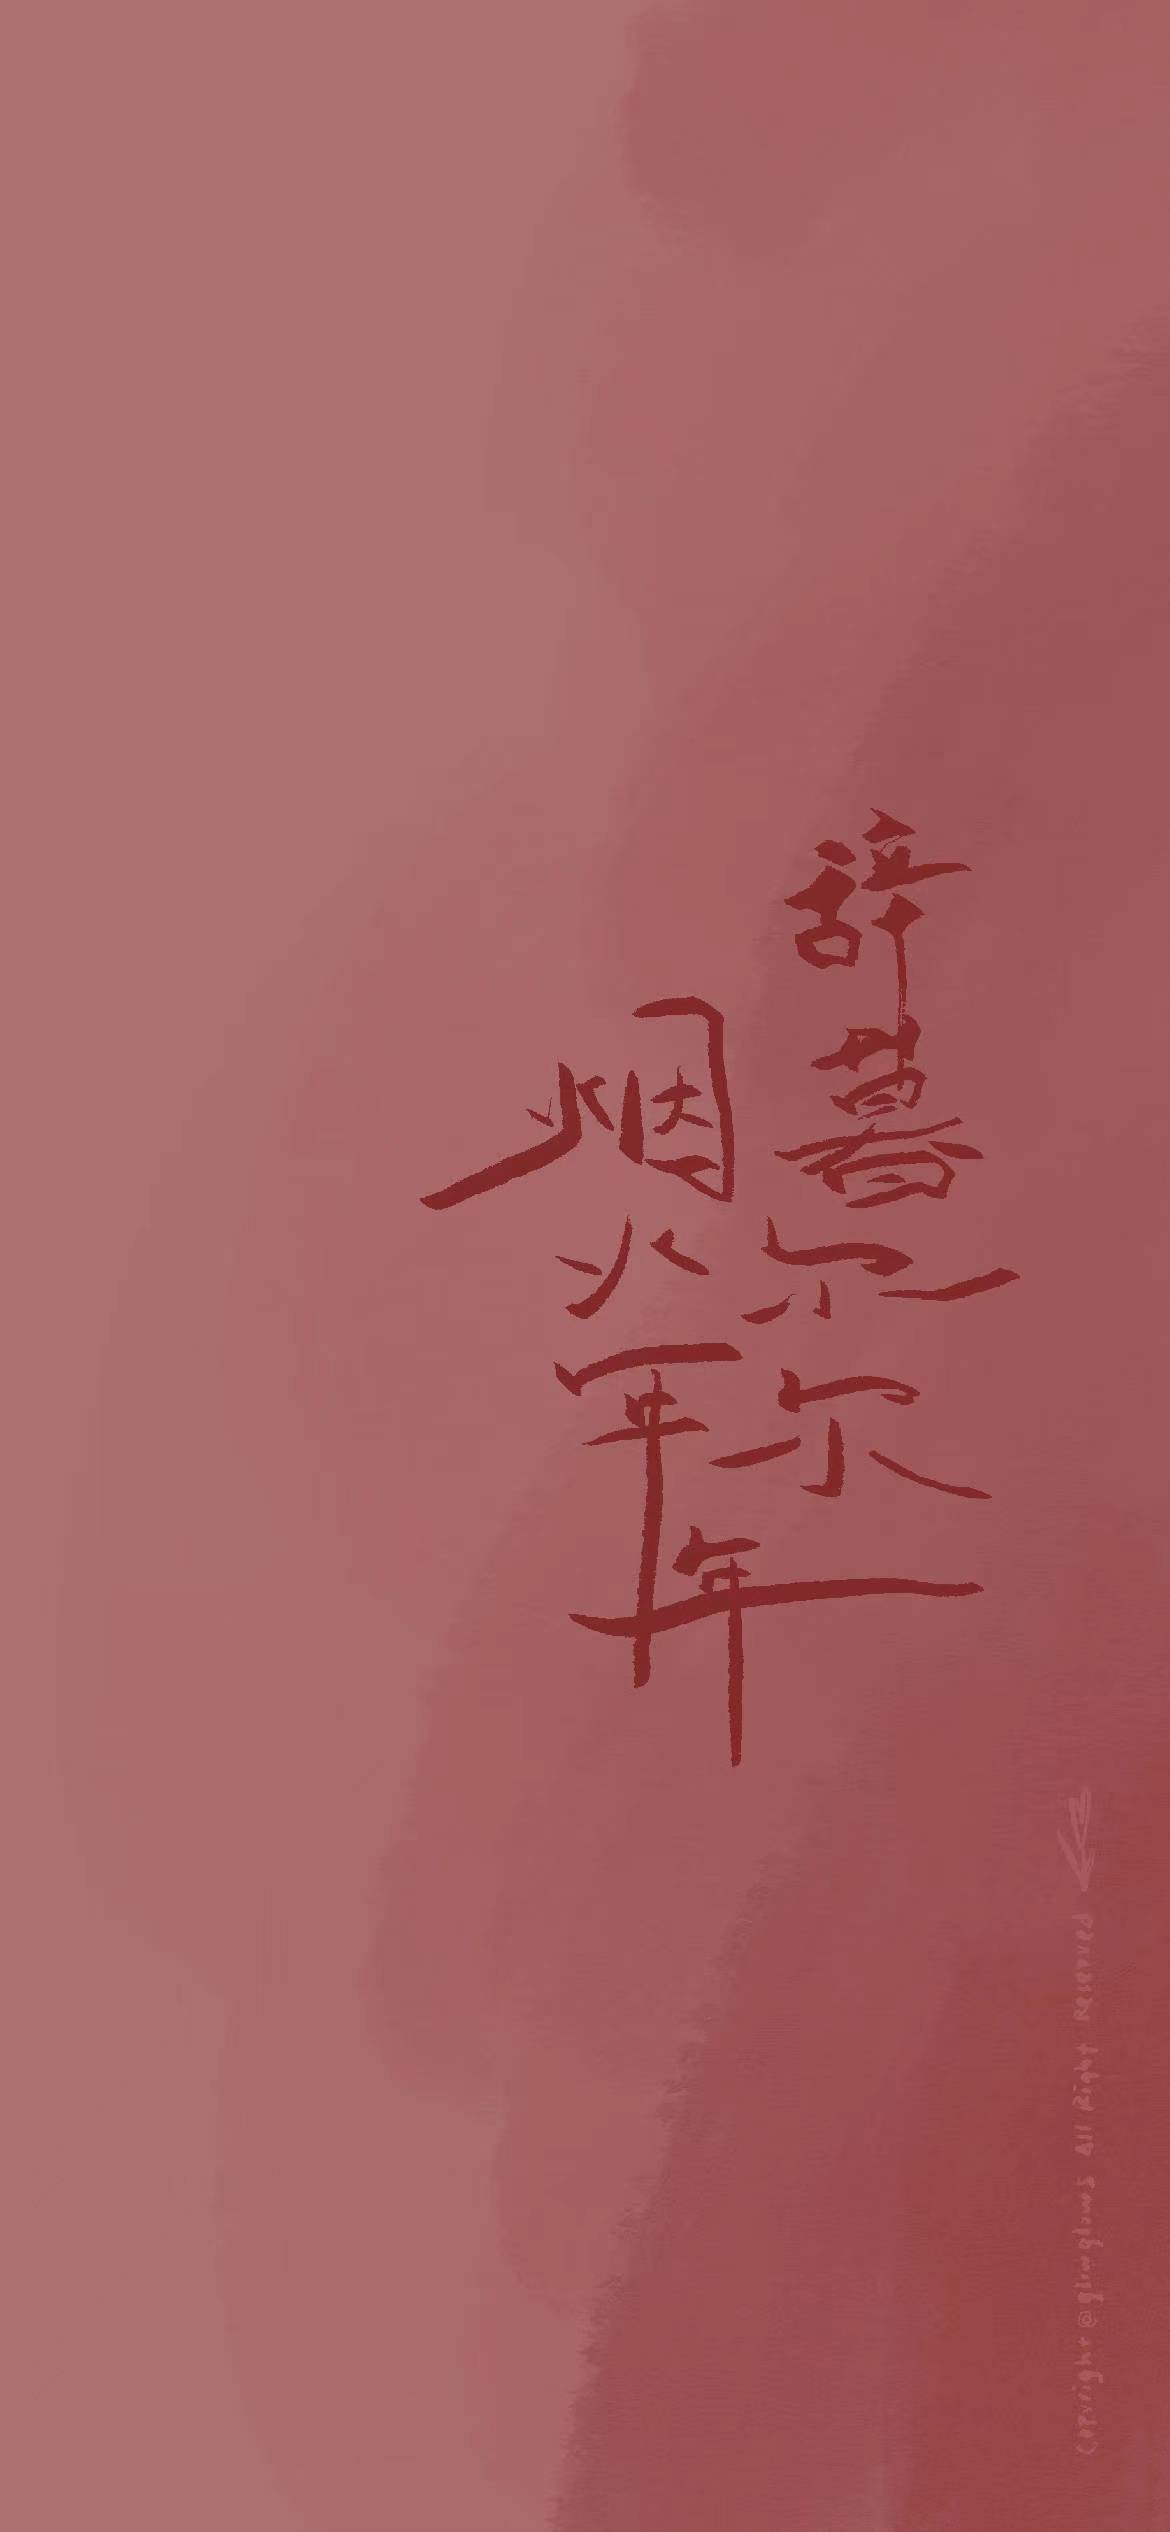 辞暮尔尔
烟火年年
Copyright@glimglams All Right Reserved